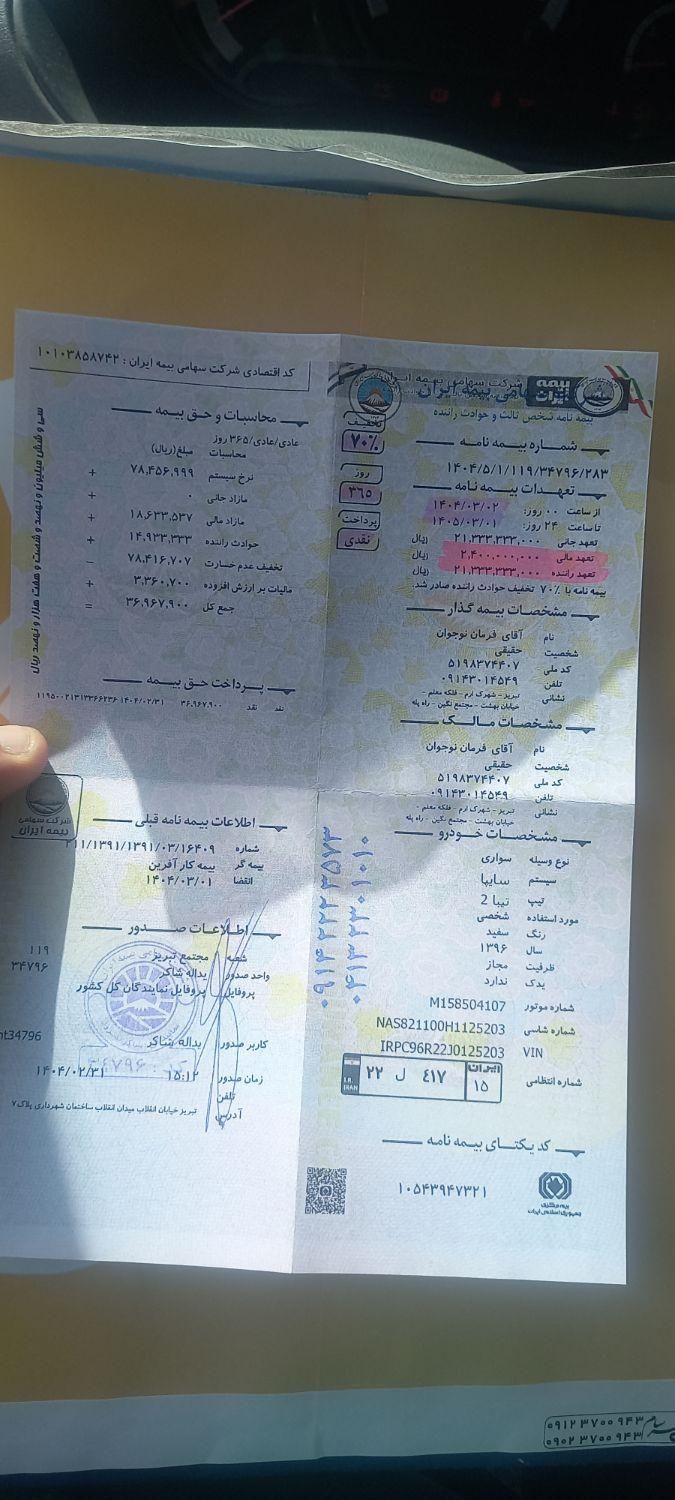 شرکت سهامی بیمه ایران
بیمه ایران
بیمه نامه شخص ثالث و حوادث راننده
تخفیف
۷۰%
روز
۳۶۵
پرداخت
نقدی
شماره بیمه نامه
۱۴۰۴/۵/۱/۱۱۹/۳۴۷۹۶/۲۸۳
تعهدات بیمه نامه
از ساعت ۰۰ روز: ۱۴۰۴/۰۳/۰۲
تا ساعت ۲۴ روز: ۱۴۰۵/۰۳/۰۱
تعهد جانی ۲۱,۳۳۳,۳۳۳,۰۰۰ ریال
تعهد مالی ۲,۴۰۰,۰۰۰,۰۰۰ ریال
تعهد راننده ۲۱,۳۳۳,۳۳۳,۰۰۰ ریال
بیمه نامه با ۷۰٪ تخفیف حوادث راننده صادر شد.
مشخصات بیمه گذار
نام آقای فرمان نوجوان
شخصیت حقیقی
کد ملی ۵۱۹۸۳۷۴۴۰۷
تلفن ۰۹۱۴۳۰۱۴۵۴۹
نشانی تبریز - شهرک ارم - فلکه معلم -
خیابان بهشت - مجتمع نگین - راه پله
مشخصات مالک
نام آقای فرمان نوجوان
شخصیت حقیقی
کد ملی ۵۱۹۸۳۷۴۴۰۷
تلفن ۰۹۱۴۳۰۱۴۵۴۹
نشانی تبریز - شهرک ارم - فلکه معلم -
خیابان بهشت - مجتمع نگین - راه پله
مشخصات خودرو
نوع وسیله سواری
سیستم سایپا
تیپ تیبا 2
مورد استفاده شخصی
رنگ سفید
سال ۱۳۹۶
ظرفیت مجاز
یدک ندارد
شماره موتور M158504107
شماره شاسی NAS821100H1125203
VIN IRPC96R22J0125203
شماره انتظامی
ایران ۱۵
۴۱۷ ل ۲۲
I.R. IRAN
کد یکتای بیمه نامه
۱۰۵۴۳۹۴۷۳۲۱
بیمه مرکزی
جمهوری اسلامی ایران
کد اقتصادی شرکت سهامی بیمه ایران : ۱۰۱۰۳۸۵۸۷۴۲
محاسبات و حق بیمه
عادی/عادی/۳۶۵ روز
محاسبات مبلغ(ریال)
نرخ سیستم ۷۸,۴۵۶,۹۹۹ +
مازاد جانی ۰ +
مازاد مالی ۱۸,۶۳۳,۵۳۷ +
حوادث راننده ۱۴,۹۳۳,۳۳۳ +
تخفیف عدم خسارت ۷۸,۴۱۶,۷۰۷ −
مالیات بر ارزش افزوده ۳,۳۶۰,۷۰۰ +
جمع کل ۳۶,۹۶۷,۹۰۰ =
سی و شش میلیون و نهصد و شصت و هفت هزار و نهصد ریال
پرداخت حق بیمه
نقد نقد ۳۶,۹۶۷,۹۰۰ ۱۴۰۴/۰۲/۳۱
شرکت سهامی
بیمه ایران
اطلاعات بیمه نامه قبلی
شماره ۲۱۱/۱۳۹۱/۱۳۹۱/۰۳/۱۶۴۰۹
بیمه گر بیمه کار آفرین
انقضا ۱۴۰۴/۰۳/۰۱
۰۹۱۴۲۲۲۳۵۷۳
۰۴۱۳۲۳۰۱۰۱۰
اطلاعات صدور
شعبه مجتمع تبریز ۱۱۹
واحد صدور یداله شاکر ۳۴۷۹۶
پروفایل پروفایل نمایندگان کل کشور
کاربر صدور یداله شاکر nt34796
کد: ۳۴۷۹۶
زمان صدور ۱۵:۱۲ ۱۴۰۴/۰۲/۳۱
تلفن
آدرس تبریز خیابان انقلاب میدان انقلاب ساختمان شهرداری پلاک۷
۰۹۱۲۳۷۰۰۹۴۳
۰۹۰۲۳۷۰۰۹۴۳